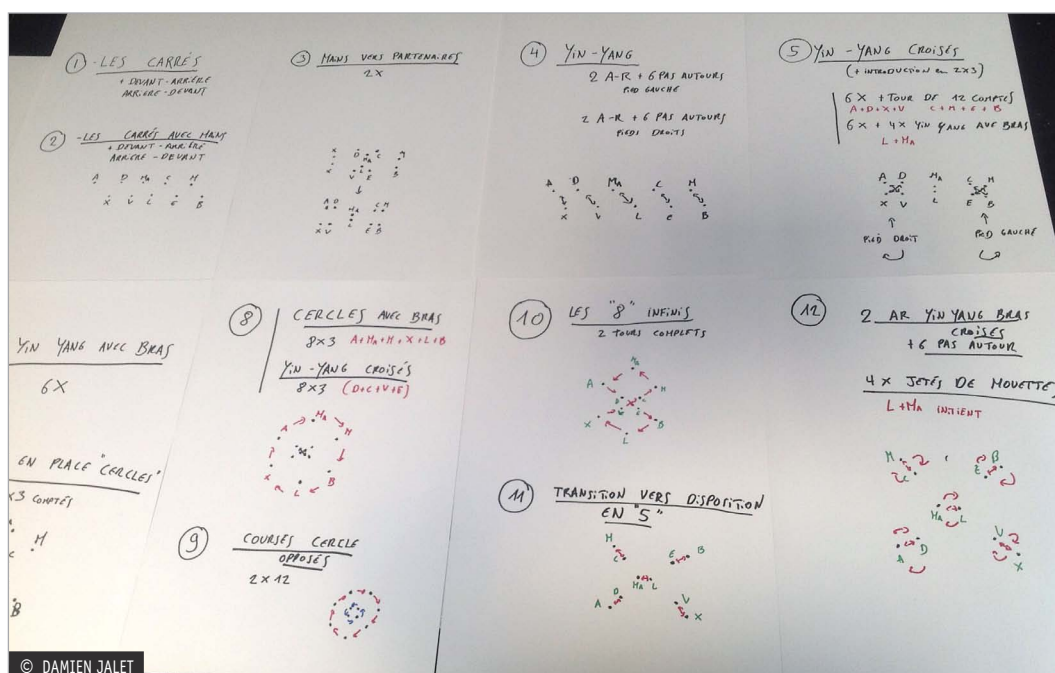 1 - LES CARRÉS
+ DEVANT - ARRIÈRE
ARRIÈRE - DEVANT
2 - LES CARRÉS AVEC MANS
+ DEVANT - ARRIÈRE
ARRIÈRE - DEVANT
A D MA C M
X V L E B
3 MANS VERS PARTENAIRES
2X
4 YIN-YANG
2 A-R + 6 PAS AUTOURS
PIED GAUCHE
2 A-R + 6 PAS AUTOURS
PIEDS DROITS
A D MA C M
X V L E B
5 YIN-YANG CROISÉS
(+ INTRODUCTION EN 2X3)
6X + TOUR DE 12 COMPTES
A+D+X+V C+M+E+B
6X + 4X YIN YANG AVE BRAS
L + MA
A D MA C M
X V L E B
PIED DROIT
PIED GAUCHE
YIN YANG AVEC BRAS
6X
EN PLACE "CERCLES"
X3 COMPTÉS
M
C
B
8 CERCLES AVEC BRAS
8X3 A+MA+M+X+L+B
YIN-YANG CROISÉS
8X3 (D+C+V+E)
A MA M
X L B
9 COURSES CERCLE
OPPOSÉS
2 X 12
10 LES "8" INFINIS
2 TOURS COMPLETS
MA
A M
X B
L
11 TRANSITION VERS DISPOSITION
EN "5"
M E B
C
D MA L V
A X
12 2 AR YIN YANG BRAS
CROISÉS
+ 6 PAS AUTOUR
4 X JETÉS DE MOUETTES
L + MA INITIENT
M B
C E
MA L
D V
A X
© DAMIEN JALET